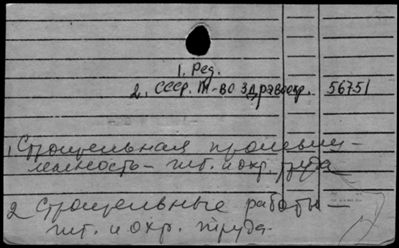 1. Ред.
2. СССР. М-во здравоохр. 56751
1. Строительная промышлен-
ленность — гиг. и охр. труда
2 Строительные работы
гиг. и охр. труда.